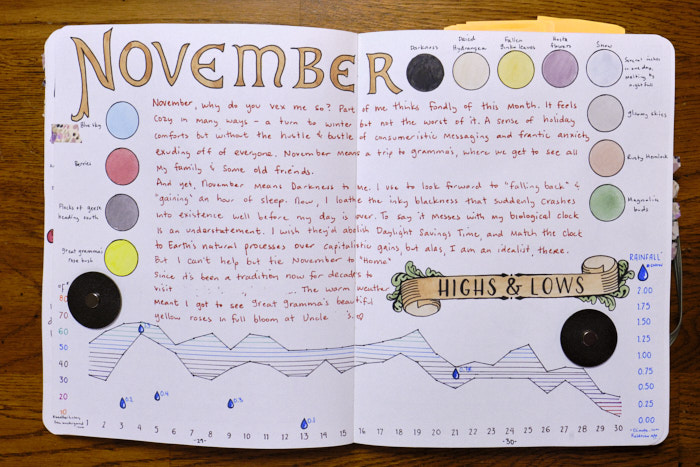 NOVEMBER
Darkness
Dried Hydrangea
Fallen Ginko leaves
Hosta flowers
Snow
Several inches in one day, melting by nightfall
Blue sky
Berries
Flocks of geese heading south
Great gramma's rose bush
gloomy skies
Rusty Hemlock
Magnolia buds
November, why do you vex me so? Part of me thinks fondly of this month. It feels
cozy in many ways - a turn to winter but not the worst of it. A sense of holiday
comforts but without the hustle & bustle of consumeristic messaging and frantic anxiety
exuding off of everyone. November means a trip to gramma's, where we get to see all
my family & some old friends.
And yet, November means Darkness to me. I use to look forward to "falling back" &
"gaining" an hour of sleep. Now, I loathe the inky blackness that suddenly crashes
into existence well before my day is over. To say it messes with my biological clock
is an understatement. I wish they'd abolish Daylight Savings Time, and Match the clock
to Earth's natural processes over capitalistic gains, but alas, I am an idealist, there.
But I can't help but tie November to "Home"
Since it's been a tradition now for decades to
visit The warm weather
meant I got to see great gramma's beautiful
yellow roses in full bloom at Uncle 's.
HIGHS & LOWS
RAINFALL
2.00
1.75
1.50
1.25
1.00
0.75
0.50
0.25
0.00
80
70
60
50
40
30
20
10
0.2
0.4
0.3
0.1
1 2 3 4 5 6 7 8 9 10 11 12 13 14 15 16 17 18 19 20 21 22 23 24 25 26 27 28 29 30
-29-
-30-